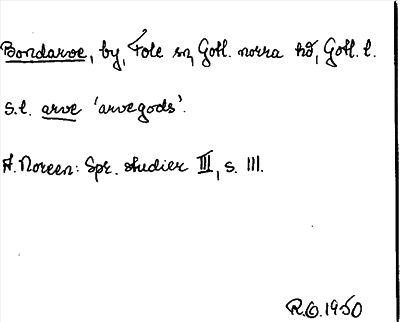 Bondarve, by, Fole sn, Gotl. norra hd, Gotl. l.
S.l. arve 'arvegods'.
A. Noreen: Spr. studier III, s. 111.
R.O. 1950